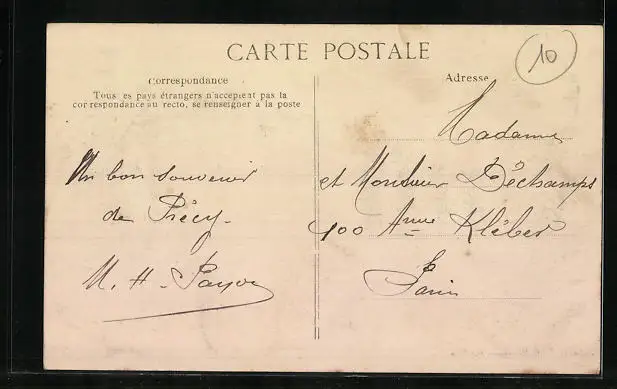 CARTE POSTALE
10
Correspondance
Tous les pays étrangers n'acceptent pas la
correspondance au recto, se renseigner à la poste
Adresse
Un bon souvenir
de Précy-
M. H-
Madame
et Monsieur Déchamps
100 Anue Kléber
Paris